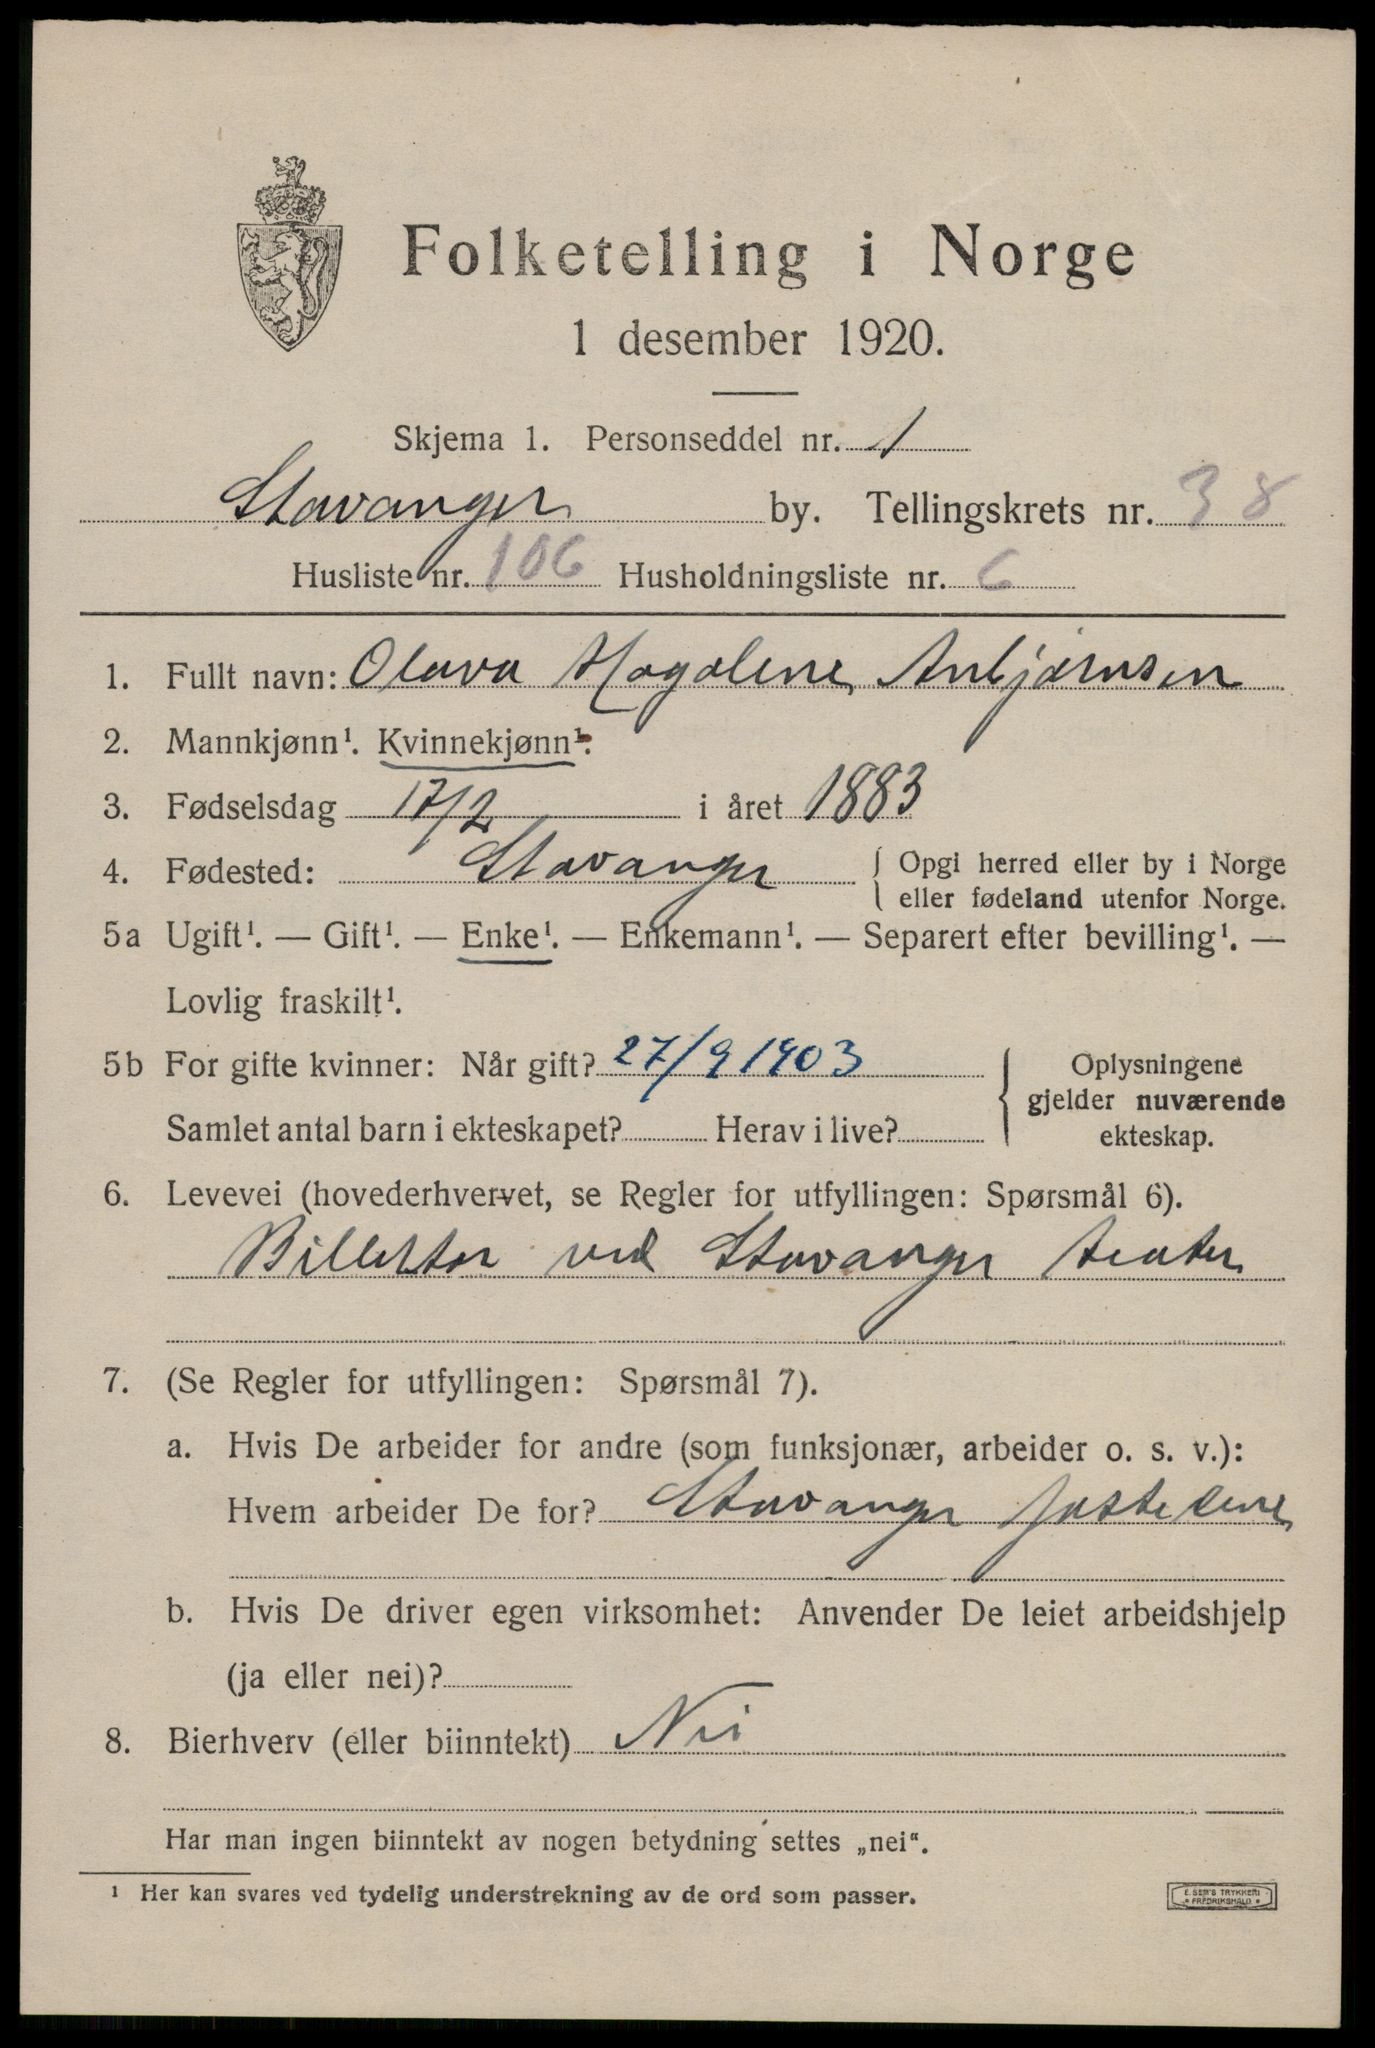 Folketelling i Norge
1 desember 1920.
Skjema 1. Personseddel nr. 1
Stavanger by. Tellingskrets nr. 38
Husliste nr. 106 Husholdningsliste nr. 6
1. Fullt navn: Olava Magdalene Anbjørnsen
2. Mannkjønn¹. Kvinnekjønn¹.
3. Fødselsdag 17/2 i året 1883
4. Fødested: Stavanger { Opgi herred eller by i Norge
eller fødeland utenfor Norge.
5a Ugift¹. — Gift¹. — Enke¹. — Enkemann¹. — Separert efter bevilling¹. —
Lovlig fraskilt¹.
5b For gifte kvinner: Når gift? 27/9 1903
Samlet antal barn i ekteskapet? Herav i live?
Oplysningene
gjelder nuværende
ekteskap.
6. Levevei (hovederhvervet, se Regler for utfyllingen: Spørsmål 6).
Billettør ved Stavanger teater
7. (Se Regler for utfyllingen: Spørsmål 7).
a. Hvis De arbeider for andre (som funksjonær, arbeider o. s. v.):
Hvem arbeider De for? Stavanger
b. Hvis De driver egen virksomhet: Anvender De leiet arbeidshjelp
(ja eller nei)?
8. Bierhverv (eller biinntekt) Nei
Har man ingen biinntekt av nogen betydning settes „nei“.
¹ Her kan svares ved tydelig understrekning av de ord som passer.
E. SEM'S TRYKKERI
FREDRIKSHALD